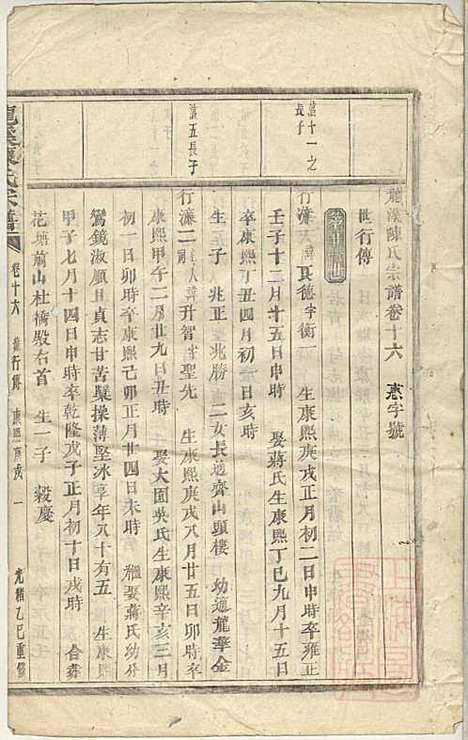 龍溪陳氏宗譜卷十六 惠字號
世行傳
濂十一之
長子
行濂一諱良德字衡一 生康熙庚戌正月初二日申時卒雍正
壬子十二月十五日申時 娶蔣氏生康熙丁巳九月十五日
卒康熙丁丑四月初一日亥時
生二子 兆正 兆勝 二女長適齊山頭樓 幼適龍華金
五長子
行濂二 諱升智字聖先 生康熙庚戌八月廿五日卯時卒
康熙甲午二月廿九日丑時 娶大園吳氏生康熙辛亥三月
初一日卯時卒康熙己卯正月廿四日未時 繼娶蔣氏幼分
鸞鏡淑順且貞志甘苦櫱操薄堅冰享年八十有五 生康熙
甲子七月十四日申時卒乾隆戊子正月初十日戌時 合葬
花塘前山杜橋殿右首 生一子 毅慶
龍溪陳氏宗譜 卷十六 行傳 康熙庚戌 一 光緒乙巳重修